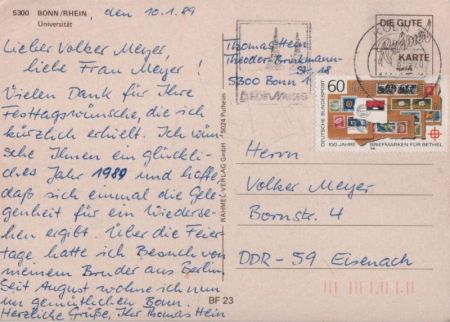 5300 BONN/RHEIN, den 10.1.89
Universität
Lieber Volker Meyer,
liebe Frau Meyer!
Vielen Dank für Ihre
Festtagswünsche, die ich
kürzlich erhielt. Ich wün-
sche Ihnen ein glückli-
ches Jahr 1989 und hoffe
daß sich einmal die Gele-
genheit für ein Wiederse-
hen ergibt. Über die Feier-
tage hatte ich Besuch von
meinem Bruder aus Berlin.
Seit August wohne ich nun
im gemütlichen Bonn.
Herzliche Grüße, Ihr Thomas Hein
RAHMEL-VERLAG GmbH · 5024 Pulheim
BF 23
Thomas Hein
Theodor-Brinkmann-
St. 18
5300 Bonn 1
DIE GUTE
KARTE
60
DEUTSCHE BUNDESPOST
100 JAHRE BRIEFMARKEN FÜR BETHEL
Herrn
Volker Meyer
Bornstr. 4
DDR-59 Eisenach